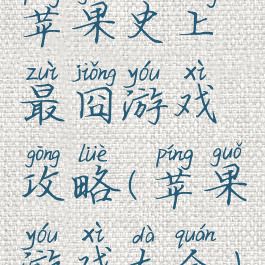 苹果史上
zuì jiǒng yóu xì
最囧游戏
gōng lüè ( píng guǒ
攻略(苹果
yóu xì dà quán
游戏大全)